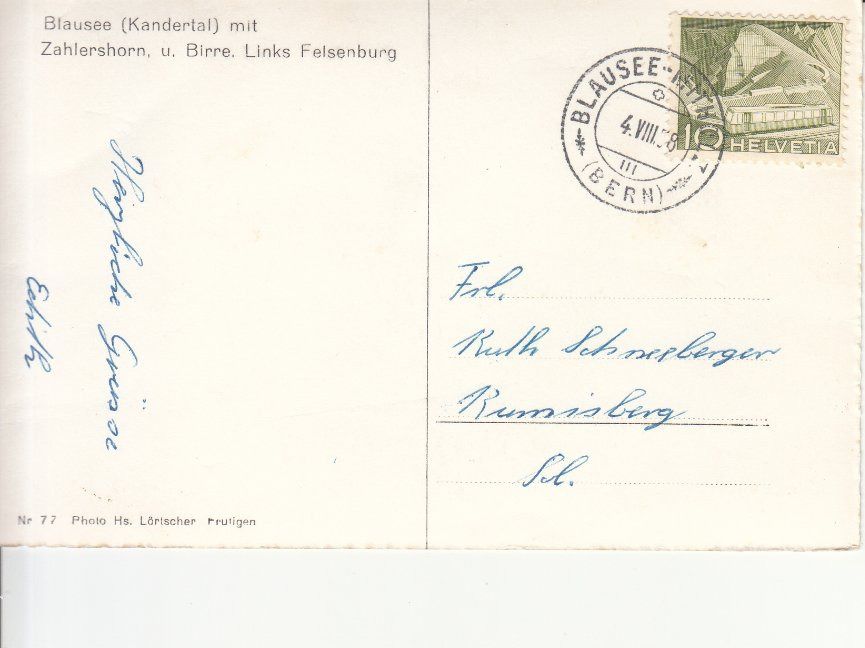 Blausee (Kandertal) mit
Zahlershorn, u. Birre. Links Felsenburg
Herzliche Grüsse
Edith
Nr 77 Photo Hs. Lörtscher Frutigen
BLAUSEE-MITHOLZ
4.VIII.58
III
(BERN)
10 HELVETIA
Frl.
Ruth Schneeberger
Rumisberg